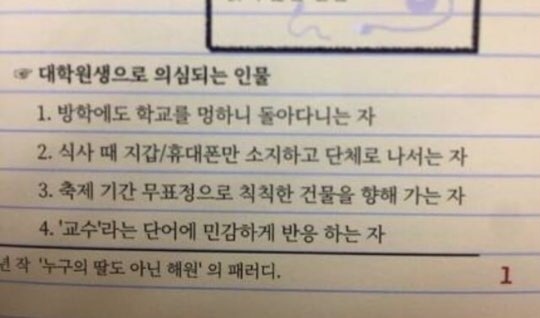 ☞ 대학원생으로 의심되는 인물
1. 방학에도 학교를 멍하니 돌아다니는 자
2. 식사 때 지갑/휴대폰만 소지하고 단체로 나서는 자
3. 축제 기간 무표정으로 칙칙한 건물을 향해 가는 자
4. '교수'라는 단어에 민감하게 반응 하는 자
년 작 '누구의 딸도 아닌 해원' 의 패러디.
1